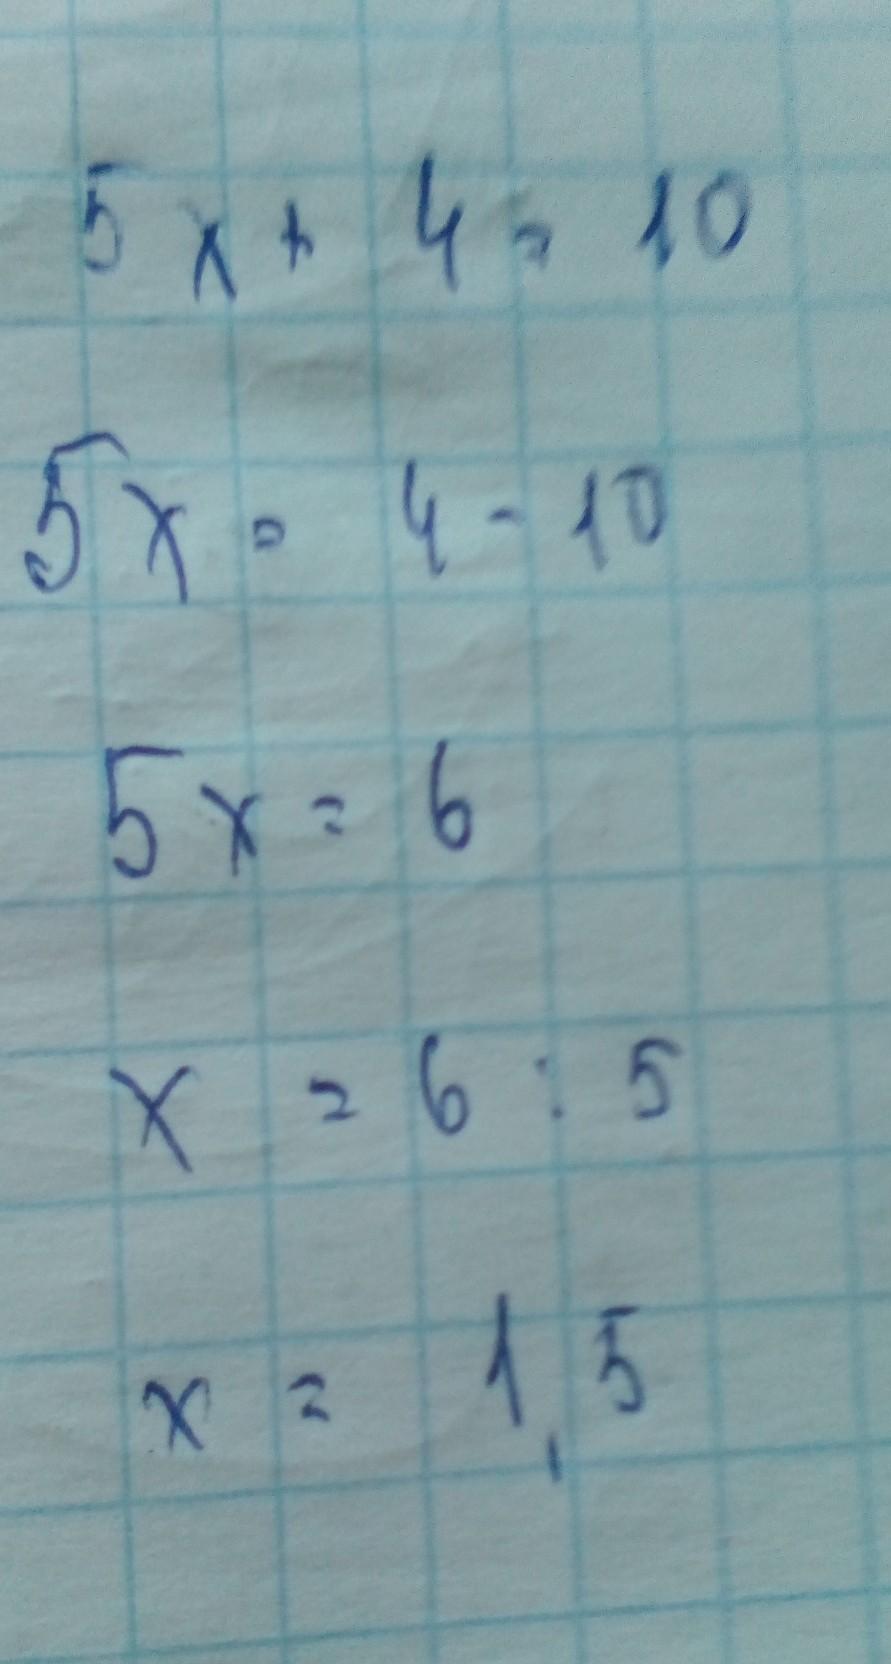 5x + 4 = 10
5x = 4 - 10
5x = 6
x = 6 : 5
x = 1,5